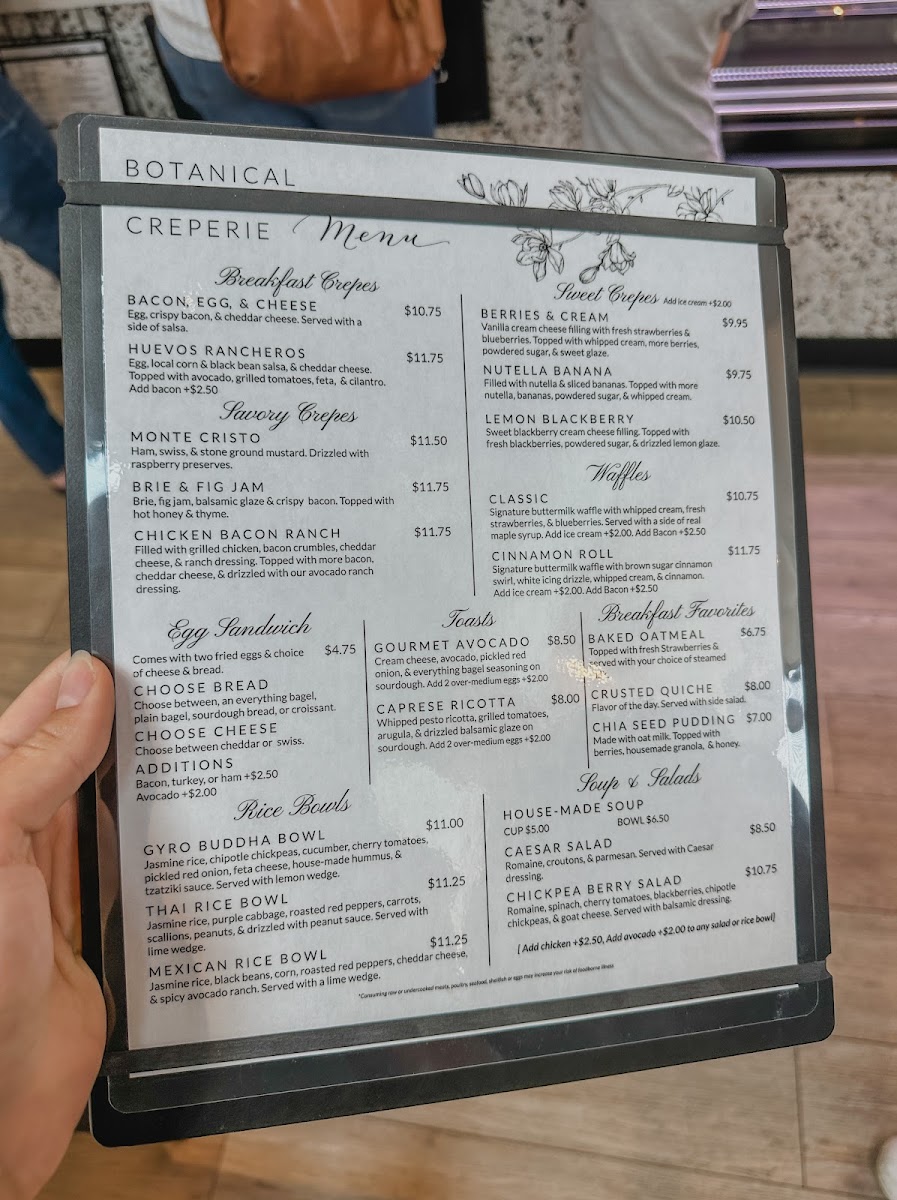 BOTANICAL
CREPERIE Menu
Breakfast Crepes
BACON, EGG, & CHEESE $10.75
Egg, crispy bacon, & cheddar cheese. Served with a
side of salsa.
HUEVOS RANCHEROS $11.75
Egg, local corn & black bean salsa, & cheddar cheese.
Topped with avocado, grilled tomatoes, feta, & cilantro.
Add bacon +$2.50
Savory Crepes
MONTE CRISTO $11.50
Ham, swiss, & stone ground mustard. Drizzled with
raspberry preserves.
BRIE & FIG JAM $11.75
Brie, fig jam, balsamic glaze & crispy bacon. Topped with
hot honey & thyme.
CHICKEN BACON RANCH $11.75
Filled with grilled chicken, bacon crumbles, cheddar
cheese, & ranch dressing. Topped with more bacon,
cheddar cheese, & drizzled with our avocado ranch
dressing.
Sweet Crepes Add ice cream +$2.00
BERRIES & CREAM $9.95
Vanilla cream cheese filling with fresh strawberries &
blueberries. Topped with whipped cream, more berries,
powdered sugar, & sweet glaze.
NUTELLA BANANA $9.75
Filled with nutella & sliced bananas. Topped with more
nutella, bananas, powdered sugar, & whipped cream.
LEMON BLACKBERRY $10.50
Sweet blackberry cream cheese filling. Topped with
fresh blackberries, powdered sugar, & drizzled lemon glaze.
Waffles
CLASSIC $10.75
Signature buttermilk waffle with whipped cream, fresh
strawberries, & blueberries. Served with a side of real
maple syrup. Add ice cream +$2.00. Add Bacon +$2.50
CINNAMON ROLL $11.75
Signature buttermilk waffle with brown sugar cinnamon
swirl, white icing drizzle, whipped cream, & cinnamon.
Add ice cream +$2.00. Add Bacon +$2.50
Egg Sandwich
Comes with two fried eggs & choice $4.75
of cheese & bread.
CHOOSE BREAD
Choose between, an everything bagel,
plain bagel, sourdough bread, or croissant.
CHOOSE CHEESE
Choose between cheddar or swiss.
ADDITIONS
Bacon, turkey, or ham +$2.50
Avocado +$2.00
Toasts
GOURMET AVOCADO $8.50
Cream cheese, avocado, pickled red
onion, & everything bagel seasoning on
sourdough. Add 2 over-medium eggs +$2.00
CAPRESE RICOTTA $8.00
Whipped pesto ricotta, grilled tomatoes,
arugula, & drizzled balsamic glaze on
sourdough. Add 2 over-medium eggs +$2.00
Breakfast Favorites
BAKED OATMEAL $6.75
Topped with fresh Strawberries &
served with your choice of steamed
CRUSTED QUICHE $8.00
Flavor of the day. Served with side salad.
CHIA SEED PUDDING $7.00
Made with oat milk. Topped with
berries, housemade granola, & honey.
Rice Bowls
GYRO BUDDHA BOWL $11.00
Jasmine rice, chipotle chickpeas, cucumber, cherry tomatoes,
pickled red onion, feta cheese, house-made hummus, &
tzatziki sauce. Served with lemon wedge.
THAI RICE BOWL $11.25
Jasmine rice, purple cabbage, roasted red peppers, carrots,
scallions, peanuts, & drizzled with peanut sauce. Served with
lime wedge.
MEXICAN RICE BOWL $11.25
Jasmine rice, black beans, corn, roasted red peppers, cheddar cheese,
& spicy avocado ranch. Served with a lime wedge.
Soup & Salads
HOUSE-MADE SOUP
CUP $5.00 BOWL $6.50
CAESAR SALAD $8.50
Romaine, croutons, & parmesan. Served with Caesar
dressing.
CHICKPEA BERRY SALAD $10.75
Romaine, spinach, cherry tomatoes, blackberries, chipotle
chickpeas, & goat cheese. Served with balsamic dressing.
[ Add chicken +$2.50, Add avocado +$2.00 to any salad or rice bowl]
*Consuming raw or undercooked meats, poultry, seafood, shellfish or eggs may increase your risk of foodborne illness